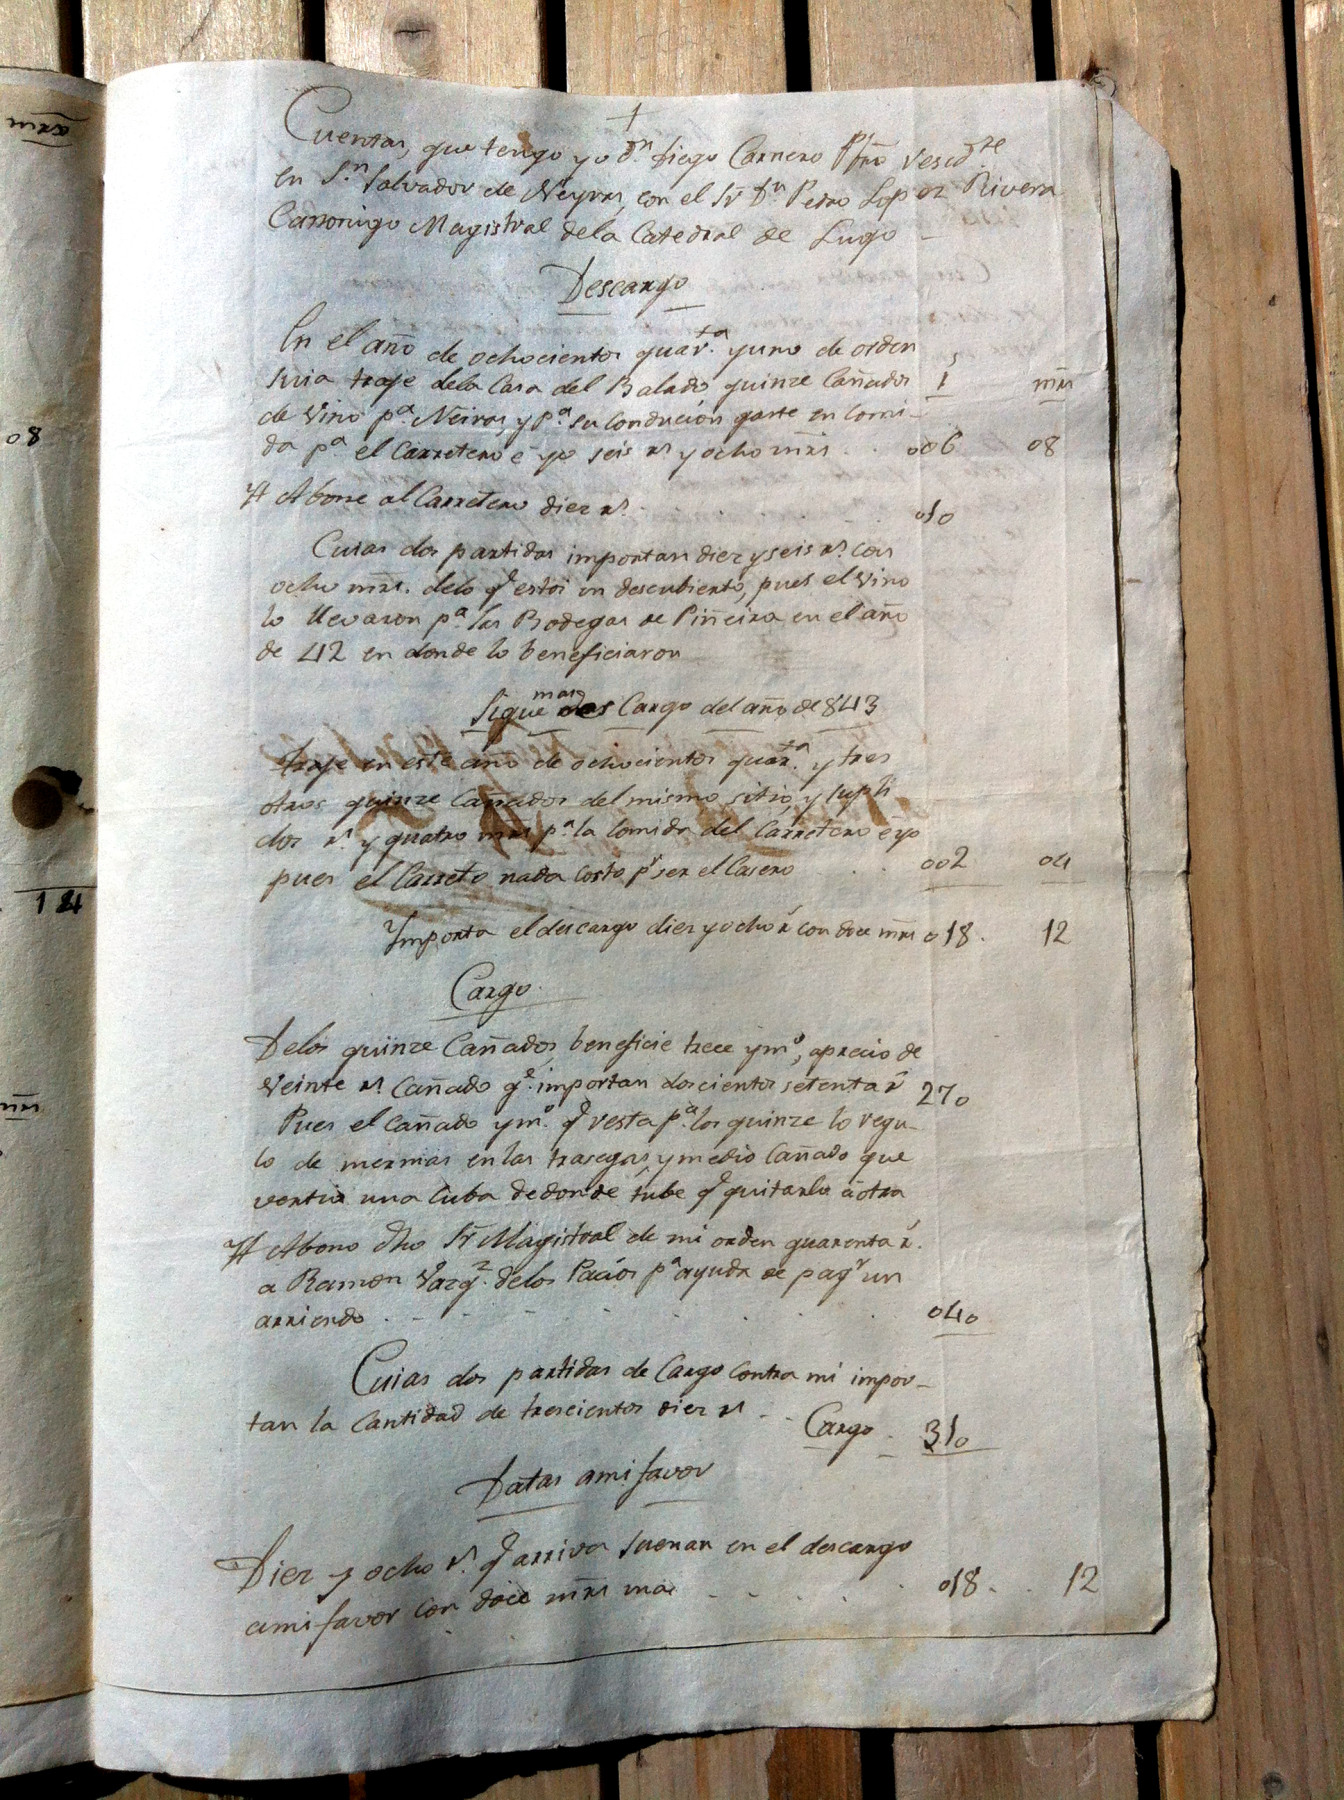 mrs
08
1 21
mrs
+
Cuentas, que tengo yo Dn. Diego Carnero Pbro Vescdte
en Sn. Salvador de Neyras, con el Sr Dn Pedro Lopez Rivera
Cannonigo Magistral dela Catedral de Lugo
Descargo
En el año de ochocientos quarta. y uno de orden
suia traje dela Casa del Balado quinze Cañados rs mrs
de vino pa. Neiras, y pa. su condución gaste en comi-
da pa el Carretero é yo seis rs y ocho mrs . . 006 08
Yt Abone al Carretero diez rs. . . . . . 010
Cuias dos partidas importan diez y seis rs. con
ocho mrs. delo q estoi en descubierto, pues el vino
lo llevaron pa. las Bodegas de Piñeira en el año
de 42 en donde lo beneficiaron
Sigue mas des Cargo del año de 843
traje en este año de ochocientos quarta. y tres
otros quinze Cañados del mismo sitio, y supli
dos rs. y quatro mrs pa. la comida del Carretero é yo
pues el Carreto nada costo pr ser el Casero . . 002 04
Importa el descargo diez y ocho rs con doce mrs 018. 12
Cargo.
Delos quinze Cañados, beneficie trece y mo, aprecio de
veinte rs. Cañado qe. importan doscientos setenta rs 270
Pues el Cañado y mo. q resta pa. los quinze lo regu-
lo de mermas en las trasegas, y medio Cañado que
vertia una Cuba dedonde tube q quitarlo a otra
Yt Abono dho Sr Magistral de mi orden quarenta rs.
a Ramon Vazqz. delos Pacios pa ayuda de pagr un
arriendo . - - . . . . 040
Cuias dos partidas de Cargo contra mi impor-
tan la Cantidad de trescientos diez rs . . Cargo. 310
Datas a mi favor
Diez y ocho rs. q arriva suenan en el descargo
a mi favor con doce mrs mas . . . . . 018 . . 12